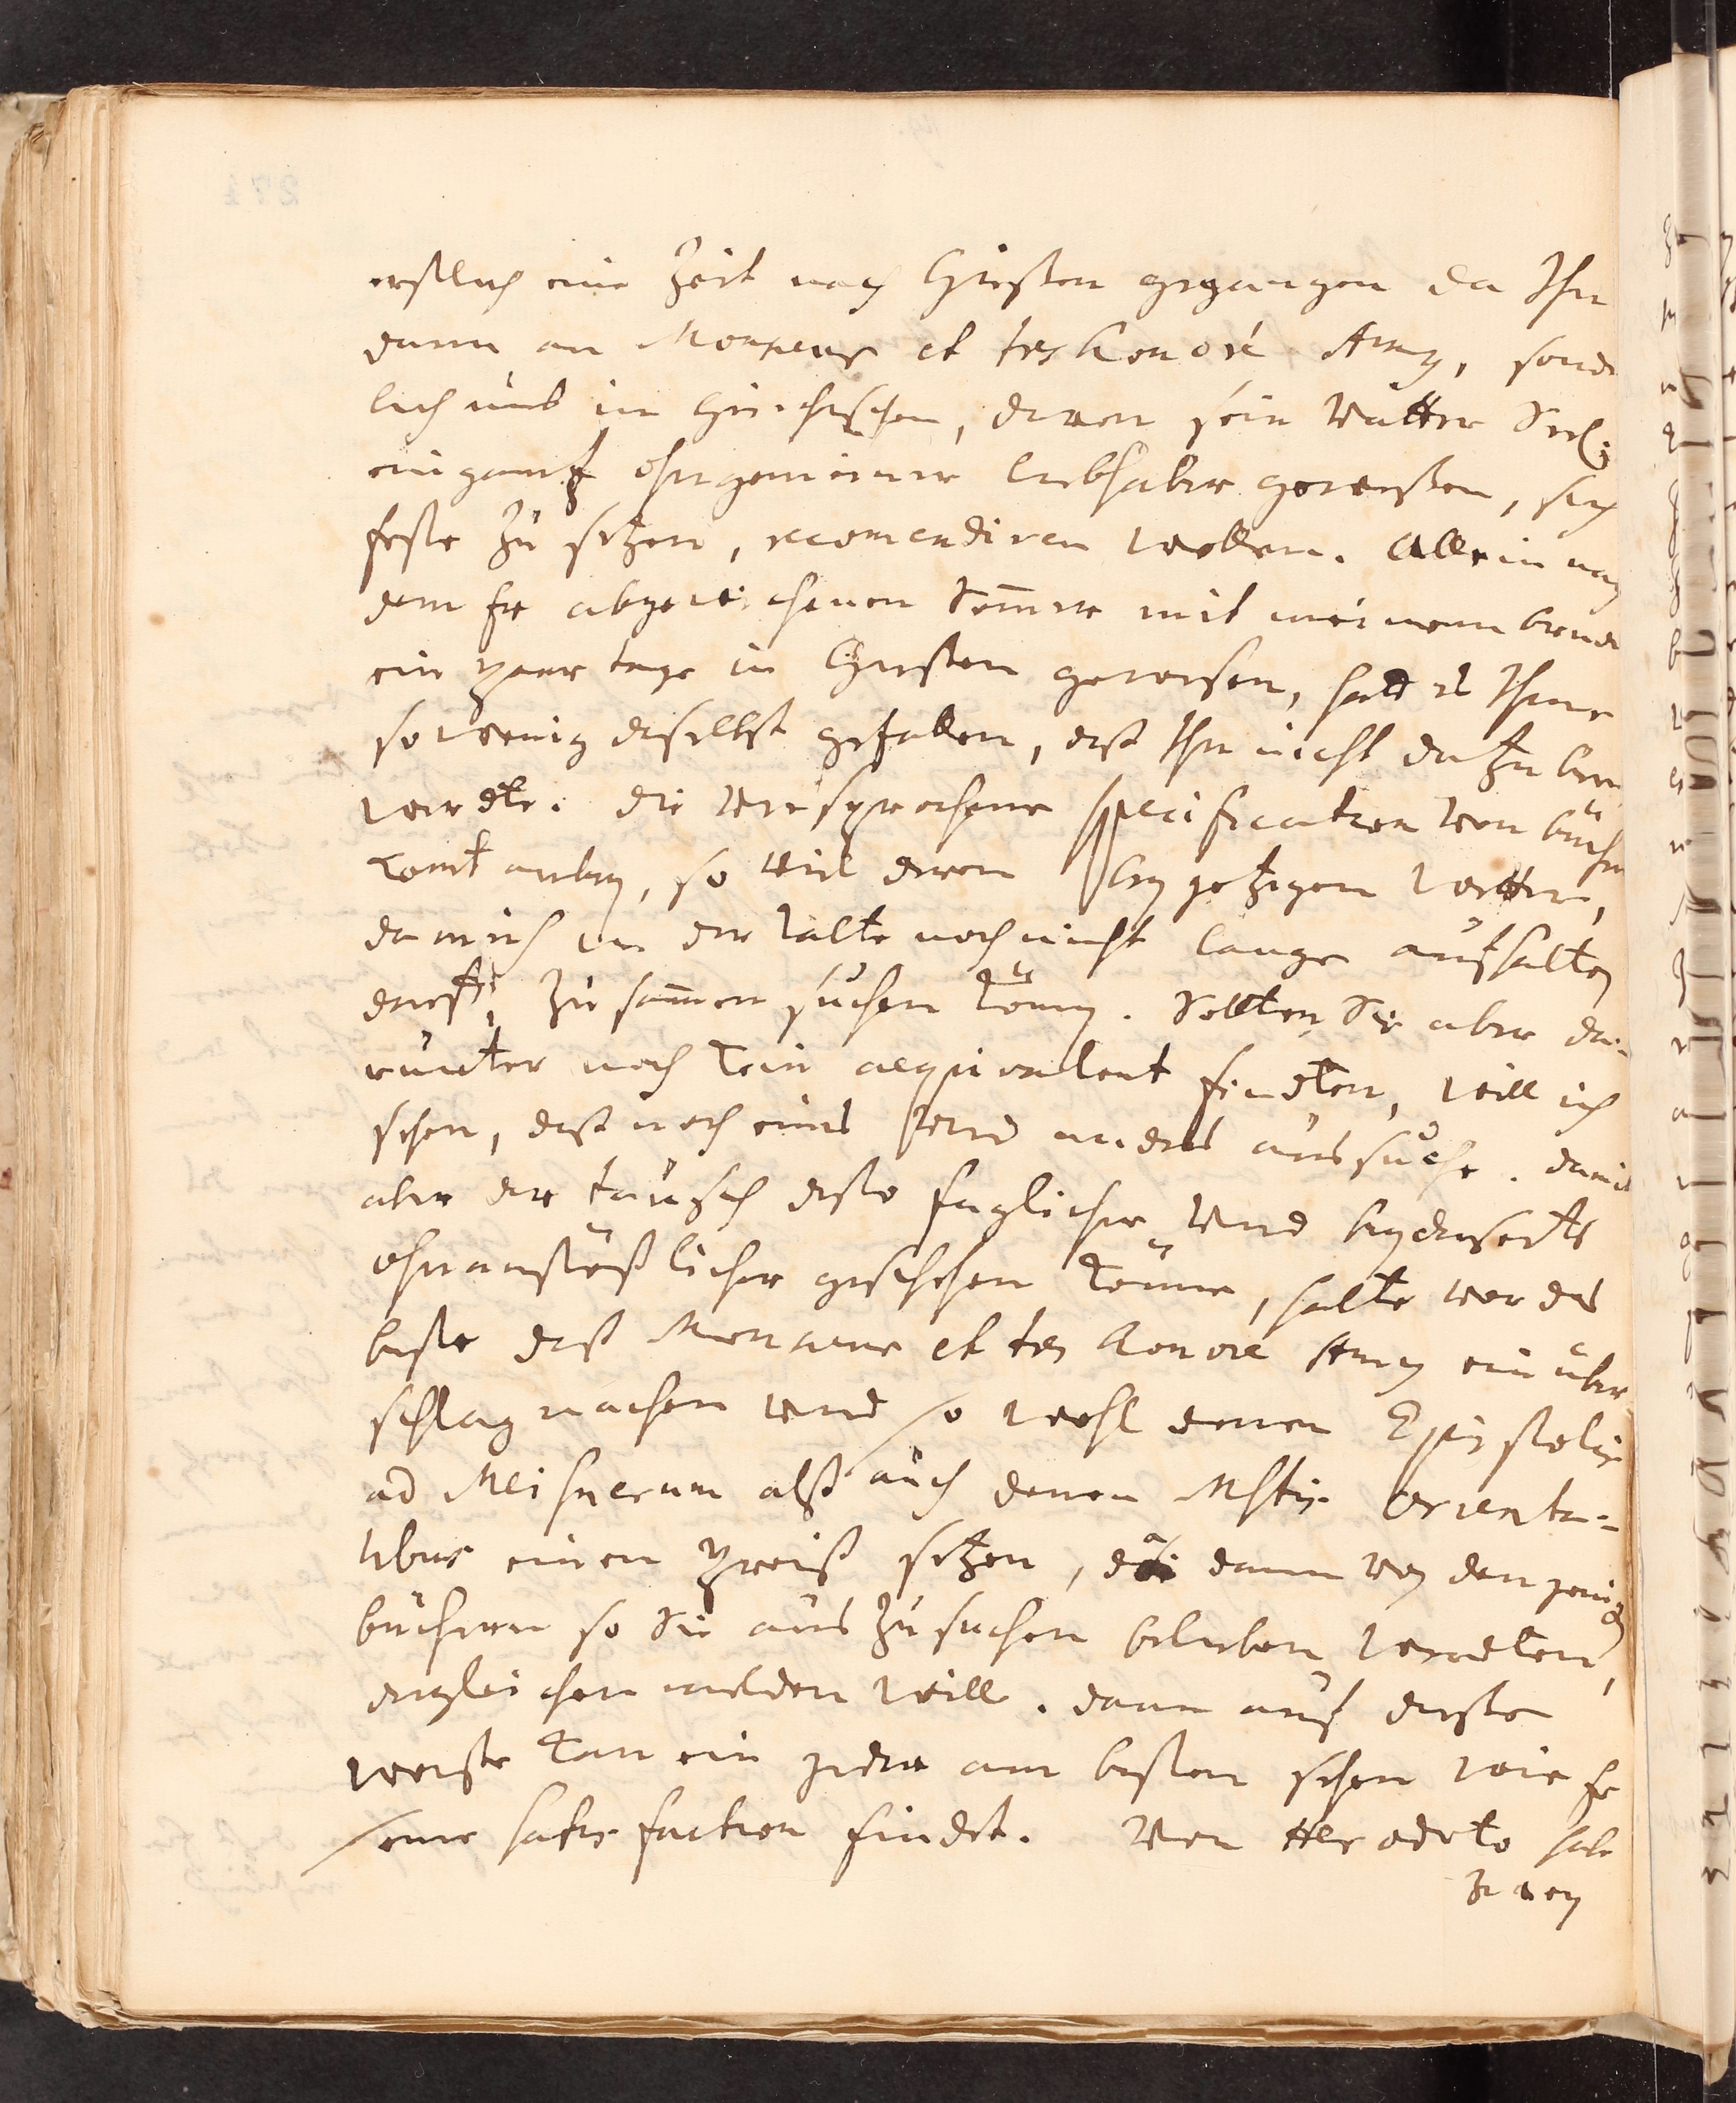 erstlich eine Zeit nach Giesen gegangen da Ihn
dann an Monsieur et tres honoré Amy, sond
lich umb im Griechischen, deren sein Vatter Seel:
ein gantz ohngemeiner liebhaber gewesen, sich
feste zu setzen, recomendiren wollen. Allein nach
dem Er abgewichenen Sommer mit meinem bruder
ein paar tage in Giesen gewesen, hatt es Ihme
so wenig daselbst gefallen, daß Ihn nicht dazu
werdte. die versprochene specification von büchern
komt anbey, so viel deren bey jetzigem wetter,
da mich in der kälte noch nicht lange aufhalten
darff, zusammen suchen können. Solten Sie aber da-
runter noch kein aequivalent findten, will ich
sehen, daß noch eins und anders aussuche. damit
aber der tausch desto fuglicher und beyderseits
ohnanstößlicher geschehen könne, halte vor das
beste daß Monsieur et tres honoré Amy ein über
schlag machen und so wohl denen Epistolis
ad Meisnerum alß auch denen Msstis orienta-
libus einen preiß setzen, da dann bey denjenigen
büchern so Sie auszusuchen belieben werdten,
dergleichen melden will. dann auf diese
weise kan ein jeder am besten sehen wie Er
seine satisfaction findet. Von Herodoto habe
zwey